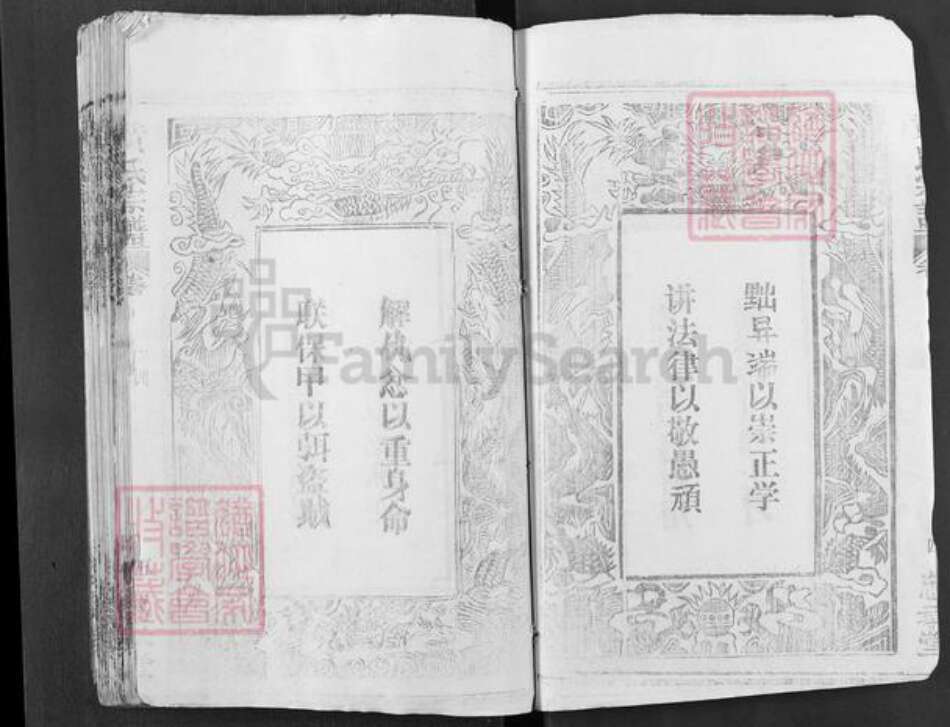 黜异端以崇正学
讲法律以敬愚頑
解仇忿以重身命
联保甲以弭盗贼
FamilySearch